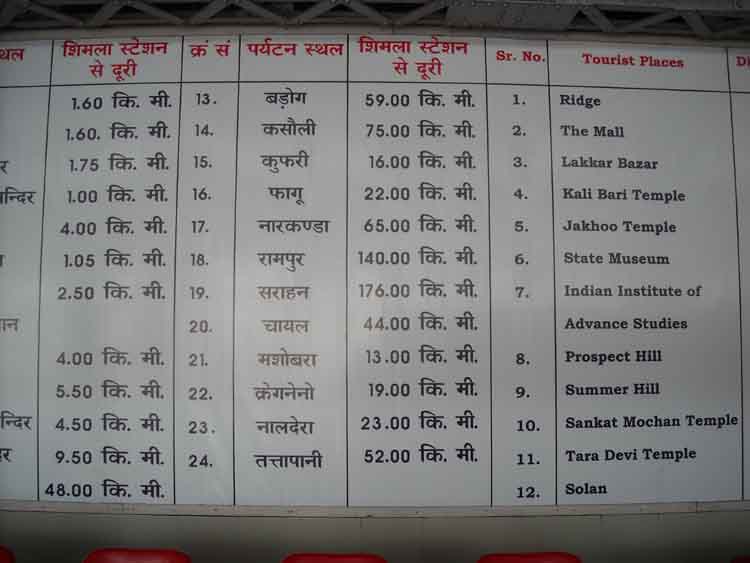 स्थल शिमला स्टेशन से दूरी क्रं सं पर्यटन स्थल शिमला स्टेशन से दूरी Sr. No. Tourist Places
1.60 कि. मी. 13. बड़ोग 59.00 कि. मी. 1. Ridge
1.60. कि. मी. 14. कसौली 75.00 कि. मी. 2. The Mall
1.75 कि. मी. 15. कुफरी 16.00 कि. मी. 3. Lakkar Bazar
1.00 कि. मी. 16. फागू 22.00 कि. मी. 4. Kali Bari Temple
4.00 कि. मी. 17. नारकण्डा 65.00 कि. मी. 5. Jakhoo Temple
1.05 कि. मी. 18. रामपुर 140.00 कि. मी. 6. State Museum
2.50 कि. मी. 19. सराहन 176.00 कि. मी. 7. Indian Institute of
20. चायल 44.00 कि. मी. Advance Studies
4.00 कि. मी. 21. मशोबरा 13.00 कि. मी. 8. Prospect Hill
5.50 कि. मी. 22. क्रेगनेनो 19.00 कि. मी. 9. Summer Hill
4.50 कि. मी. 23. नालदेरा 23.00 कि. मी. 10. Sankat Mochan Temple
9.50 कि. मी. 24. तत्तापानी 52.00 कि. मी. 11. Tara Devi Temple
48.00 कि. मी. 12. Solan